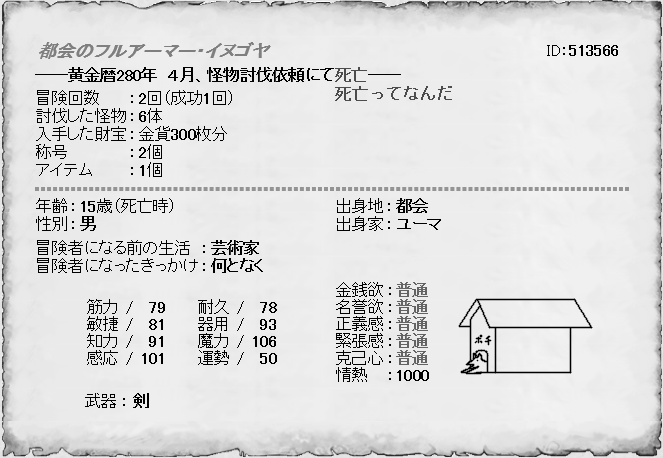 都会のフルアーマー・イヌゴヤ ID:513566
――黄金暦280年 4月、怪物討伐依頼にて死亡――
死亡ってなんだ
冒険回数 :2回(成功1回)
討伐した怪物:6体
入手した財宝:金貨300枚分
称号 :2個
アイテム :1個
年齢:15歳(死亡時) 出身地:都会
性別:男 出身家:ユーマ
冒険者になる前の生活 :芸術家
冒険者になったきっかけ:何となく
金銭欲:普通
筋力 / 79 耐久 / 78 名誉欲:普通
敏捷 / 81 器用 / 93 正義感:普通
知力 / 91 魔力 / 106 緊張感:普通
感応 / 101 運勢 / 50 克己心:普通
情熱 :1000
ポチ
武器:剣